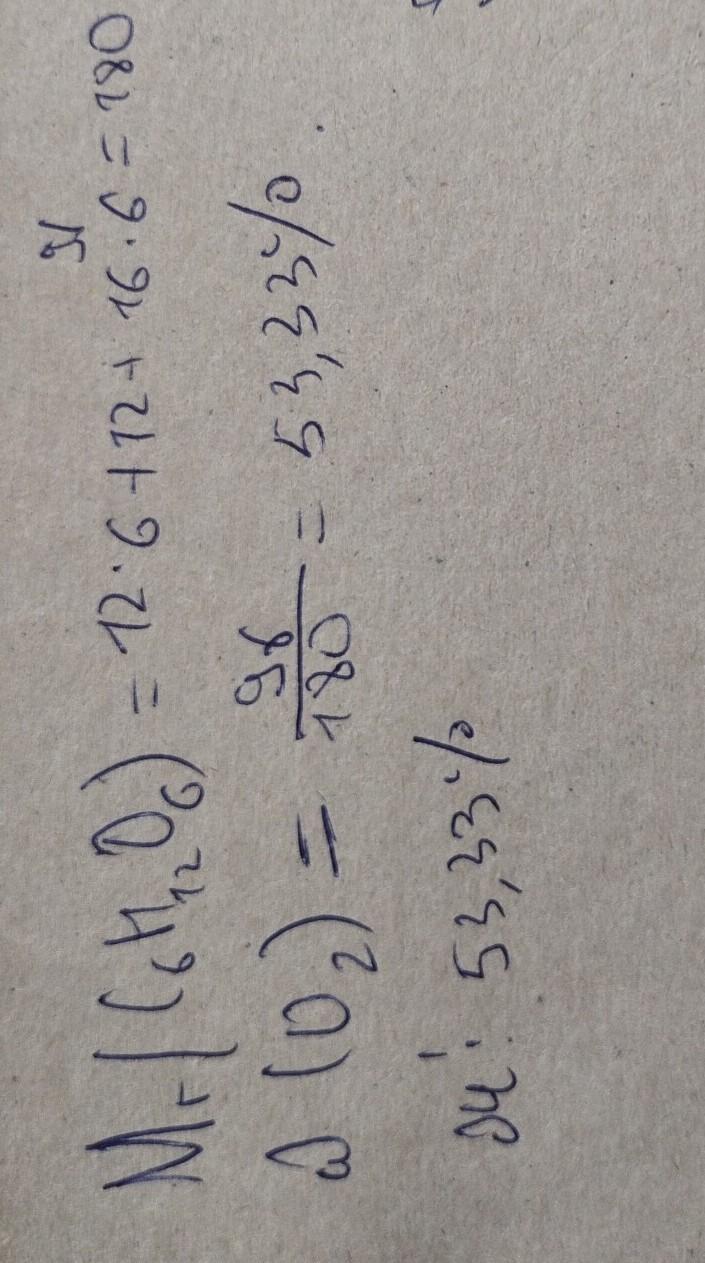 Mr(C₆H₁₂O₆) = 12·6+12+16·6=180
ω(O₂) = 96/180 = 53,33%.
53,33%